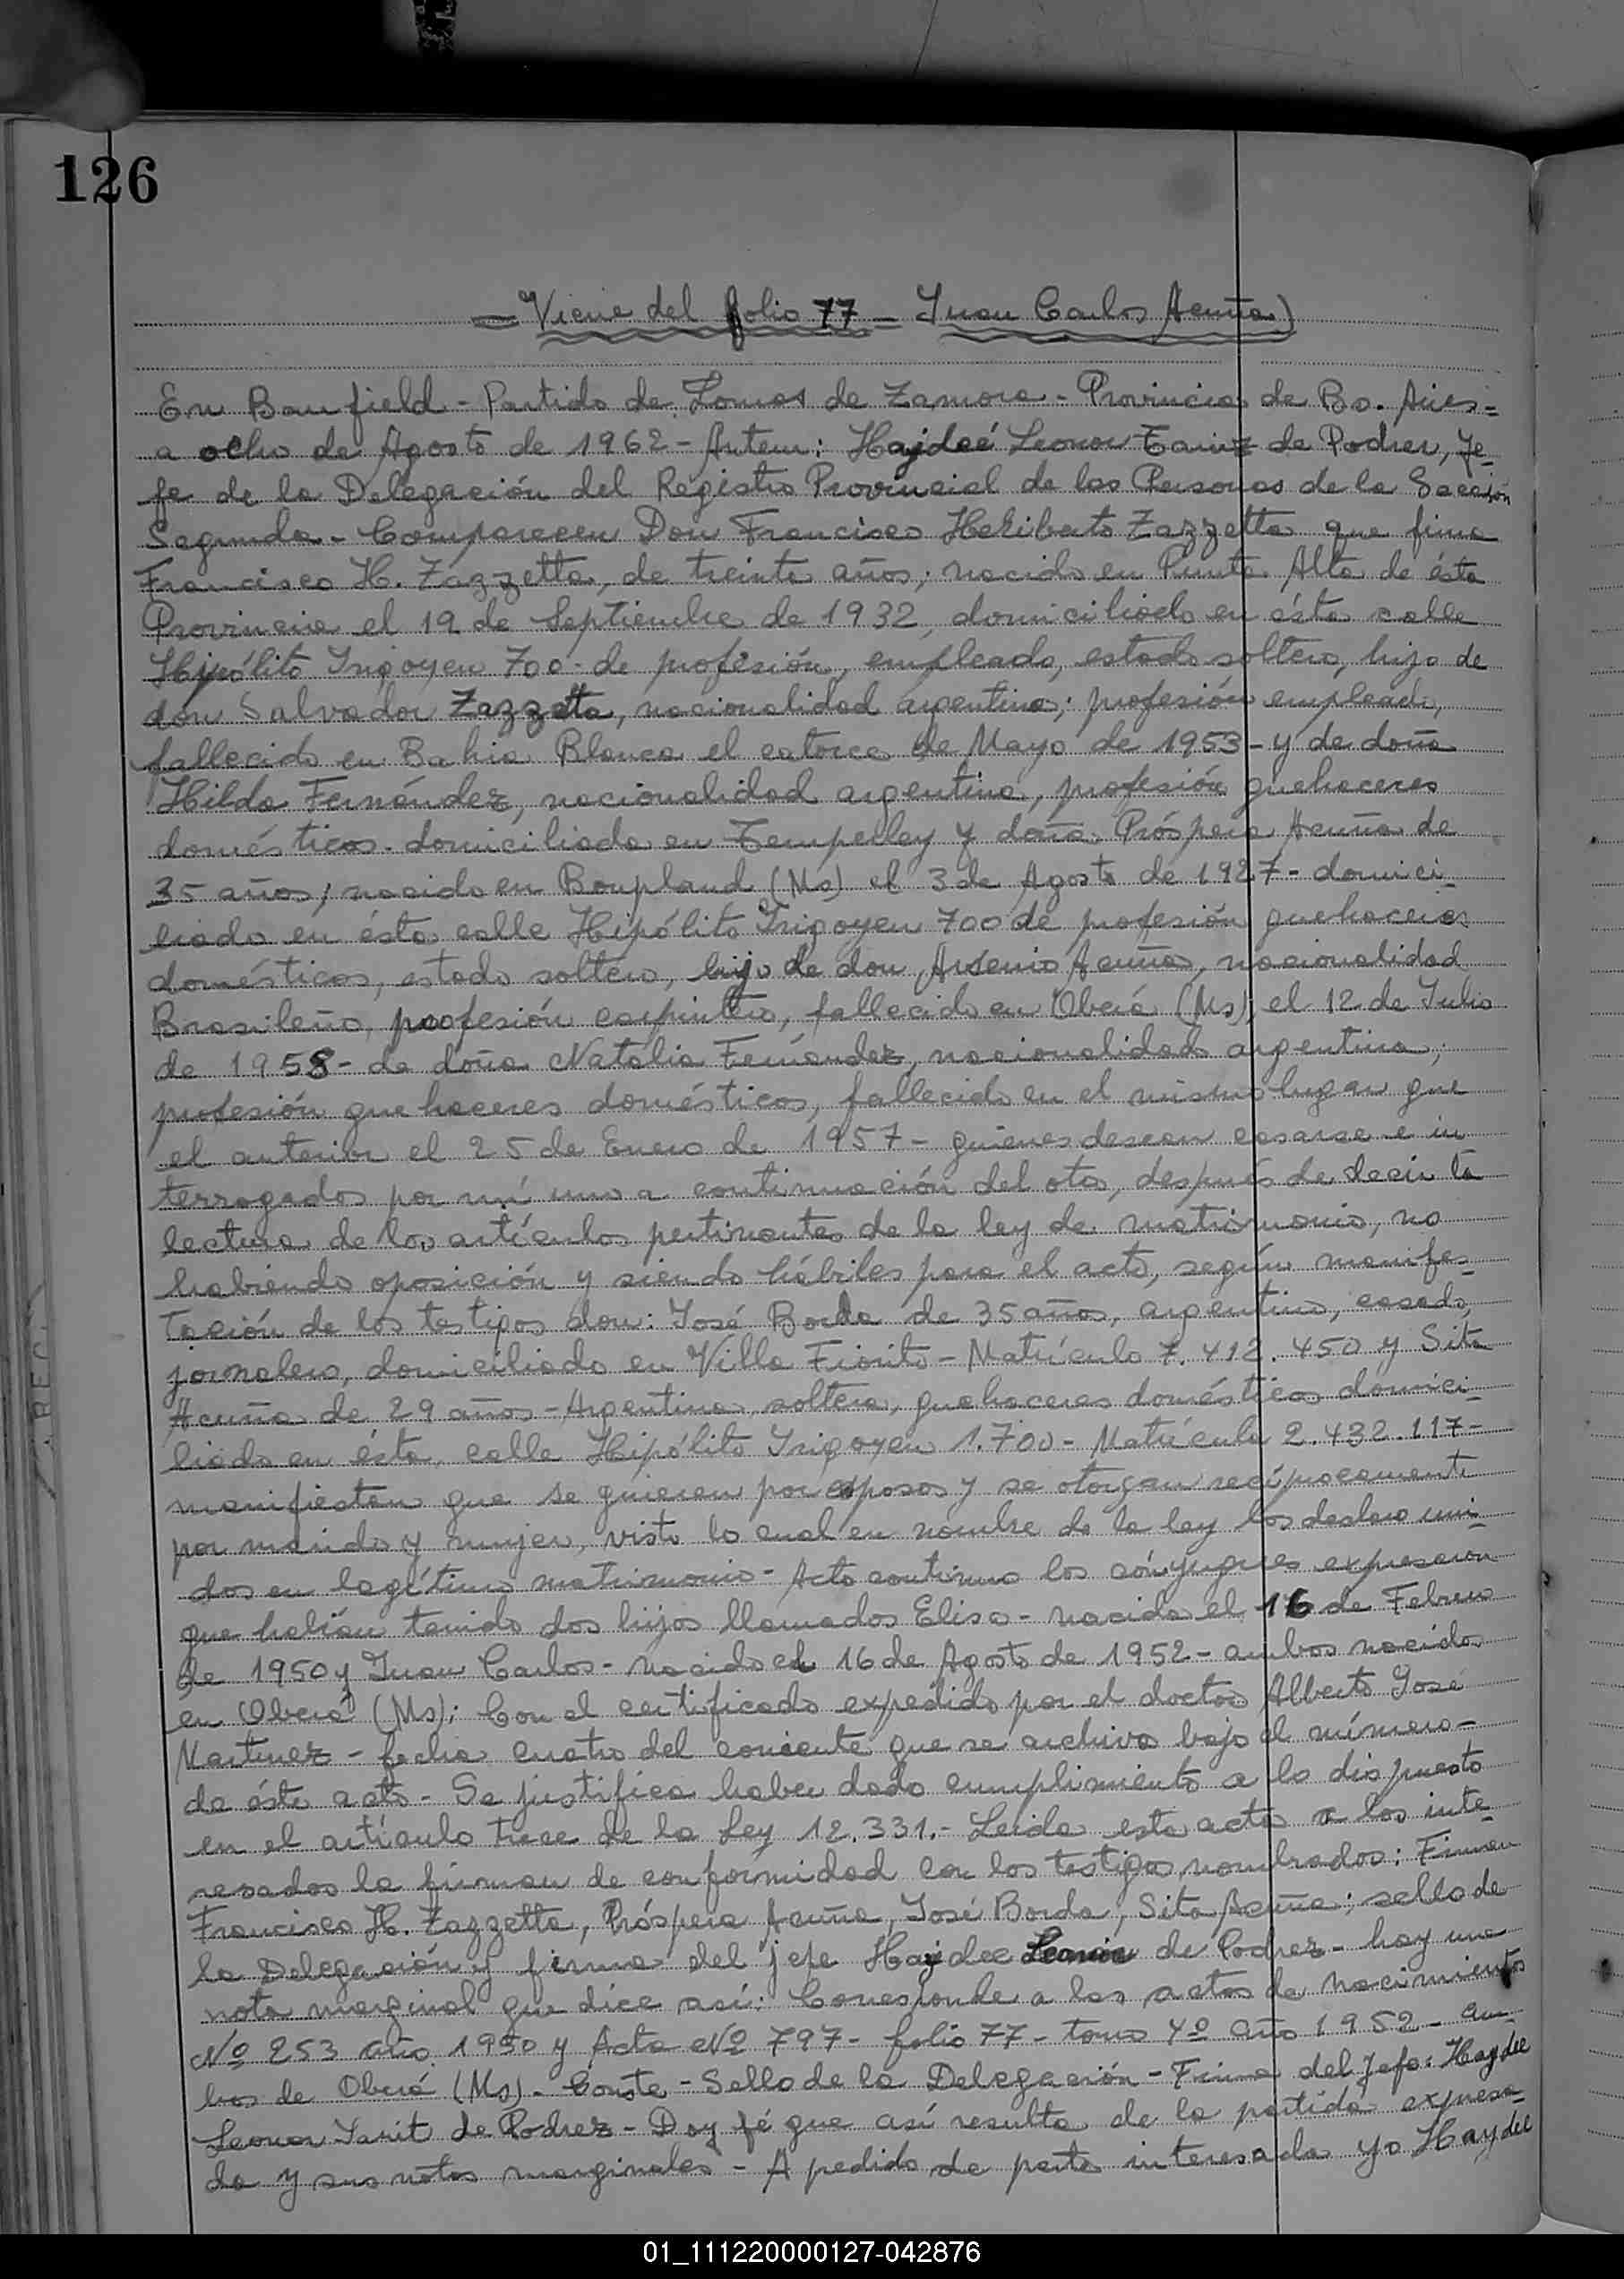 126
Viene del folio 77 - Juan Carlos Acuña)
En Banfield - Partido de Lomas de Zamora - Provincia de Bs. Aires =
a ocho de Agosto de 1962 - Antem: Hajdeé Leonor de Podrez, Je-
fe de la Delegación del Registro Provincial de las Personas de la Sección
Segunda - Comparecen Don Francisco Heriberto Zazzetta que firma
Francisco H. Zazzetta, de treinta años; nacido en Punta Alta de ésta
Provincia el 19 de Septiembre de 1932, domiciliado en ésta calle
Hipólito Irigoyen 700 - de profesión, empleado, estado soltero, hijo de
don Salvador Zazzetta, nacionalidad argentina; profesión empleado,
fallecido en Bahia Blanca el catorce de Mayo de 1953 - y de doña
Hilda Fernández, nacionalidad argentina, profesión quehaceres
domésticos - domiciliada en Temperley y doña Próspera Acuña de
35 años; nacida en Bonpland (Ms) el 3 de Agosto de 1927 - domici-
liada en ésta calle Hipólito Irigoyen 700 de profesión quehaceres
domésticos, estado soltero, hijo de don Arsenio Acuña, nacionalidad
Brasileño, profesión carpintero, fallecido en Oberá (Ms), el 12 de Julio
de 1958 - de doña Natalia Fernández, nacionalidad argentina,
profesión quehaceres domésticos, fallecida en el mismo lugar que
el anterior el 25 de Enero de 1957 - quienes desean casarse e in
terrogados por mí uno a continuación del otro, después de decir la
lectura de los artículos pertinentes de la ley de matrimonio, no
habiendo oposición y siendo hábiles para el acto, según manifes-
tación de los testigos don: José Borda de 35 años, argentino, casado,
jornalero, domiciliado en Villa Fiorito - Matrícula 7.412.450 y Sita
Acuña de 29 años - Argentina, soltera, quehaceres domésticos domici-
liada en ésta, calle Hipólito Irigoyen 1.700 - Matrícula 2.432.117 -
manifiestan que se quieren por esposos y se otorgan recíprocamente
por marido y mujer, visto lo cual en nombre de la ley los declaro uni-
dos en legítimo matrimonio - Acto continuo los cónyugues expresaron
que habían tenido dos hijos llamados Elisa - nacida el 16 de Febrero
de 1950 y Juan Carlos - nacido el 16 de Agosto de 1952 - ambos nacidos
en Oberá (Ms); Con el certificado expedido por el doctor Alberto José
Martinez - fecha cuatro del corriente que se archiva bajo el número -
de éste acto - Se justifica haber dado cumplimiento a lo dispuesto
en el artículo trece de la Ley 12.331.- Leida esta acta a los inte-
resados la firman de conformidad con los testigos nombrados: Firman
Francisco H. Zazzetta, Próspera Acuña, José Borda, Sita Acuña; sello de
la Delegación y firma del jefe Haydee Leonor de Podrez - hay una
nota marginal que dice así: Corresponde a las actas de nacimientos
Nº 253 año 1950 y Acta Nº 797 - folio 77 - tomo 4º año 1952 - am-
bos de Oberá (Ms) - Conste - Sello de la Delegación - Firma del Jefe: Haydeé
Leonor de Podrez - Doy fé que así resulta de la partida expresa-
da y sus notas marginales - A pedido de parte interesada yo Haydeé
01_111220000127-042876